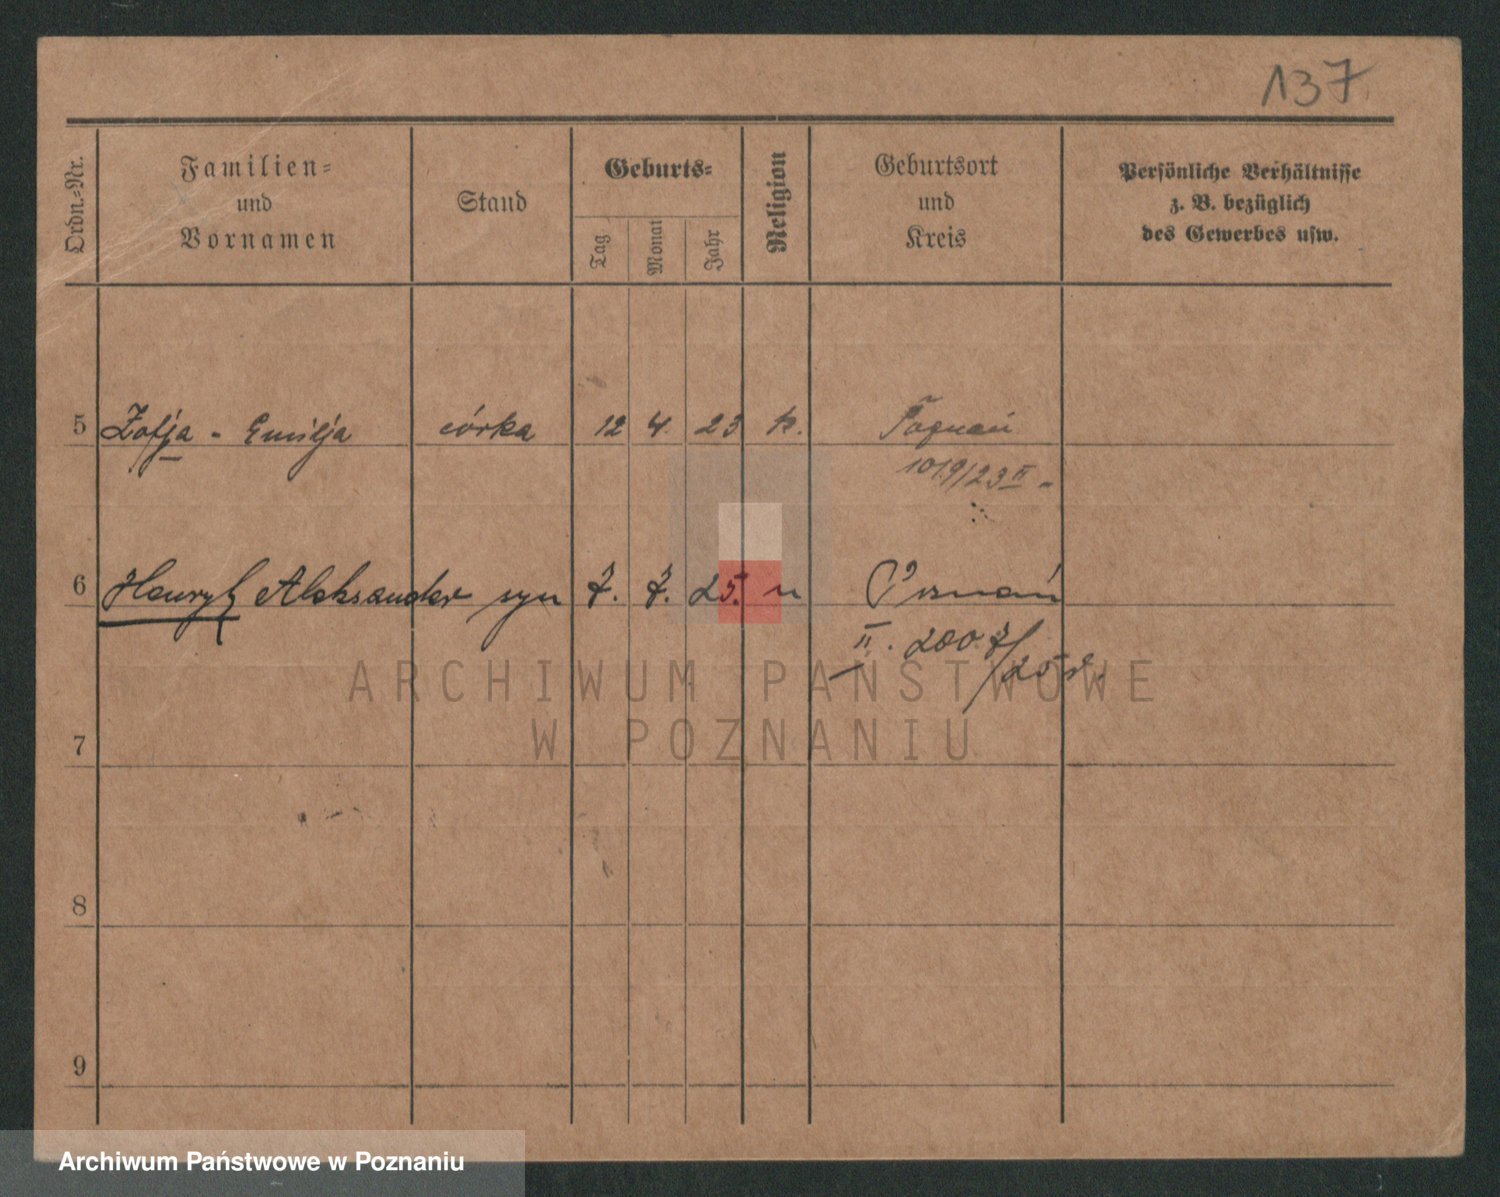 137
Ordn.-Nr.
Familien-
und
Vornamen
Stand
Geburts-
Tag
Monat
Jahr
Religion
Geburtsort
und
Kreis
Persönliche Verhältnisse
z. B. bezüglich
des Gewerbes usw.
5 Zofja - Emilja córka 12 4. 23 k. Poznań
6 Henryk Aleksander syn 7. 7. 25. " Poznań
7
8
9
ARCHIWUM PAŃSTWOWE
W POZNANIU
Archiwum Państwowe w Poznaniu